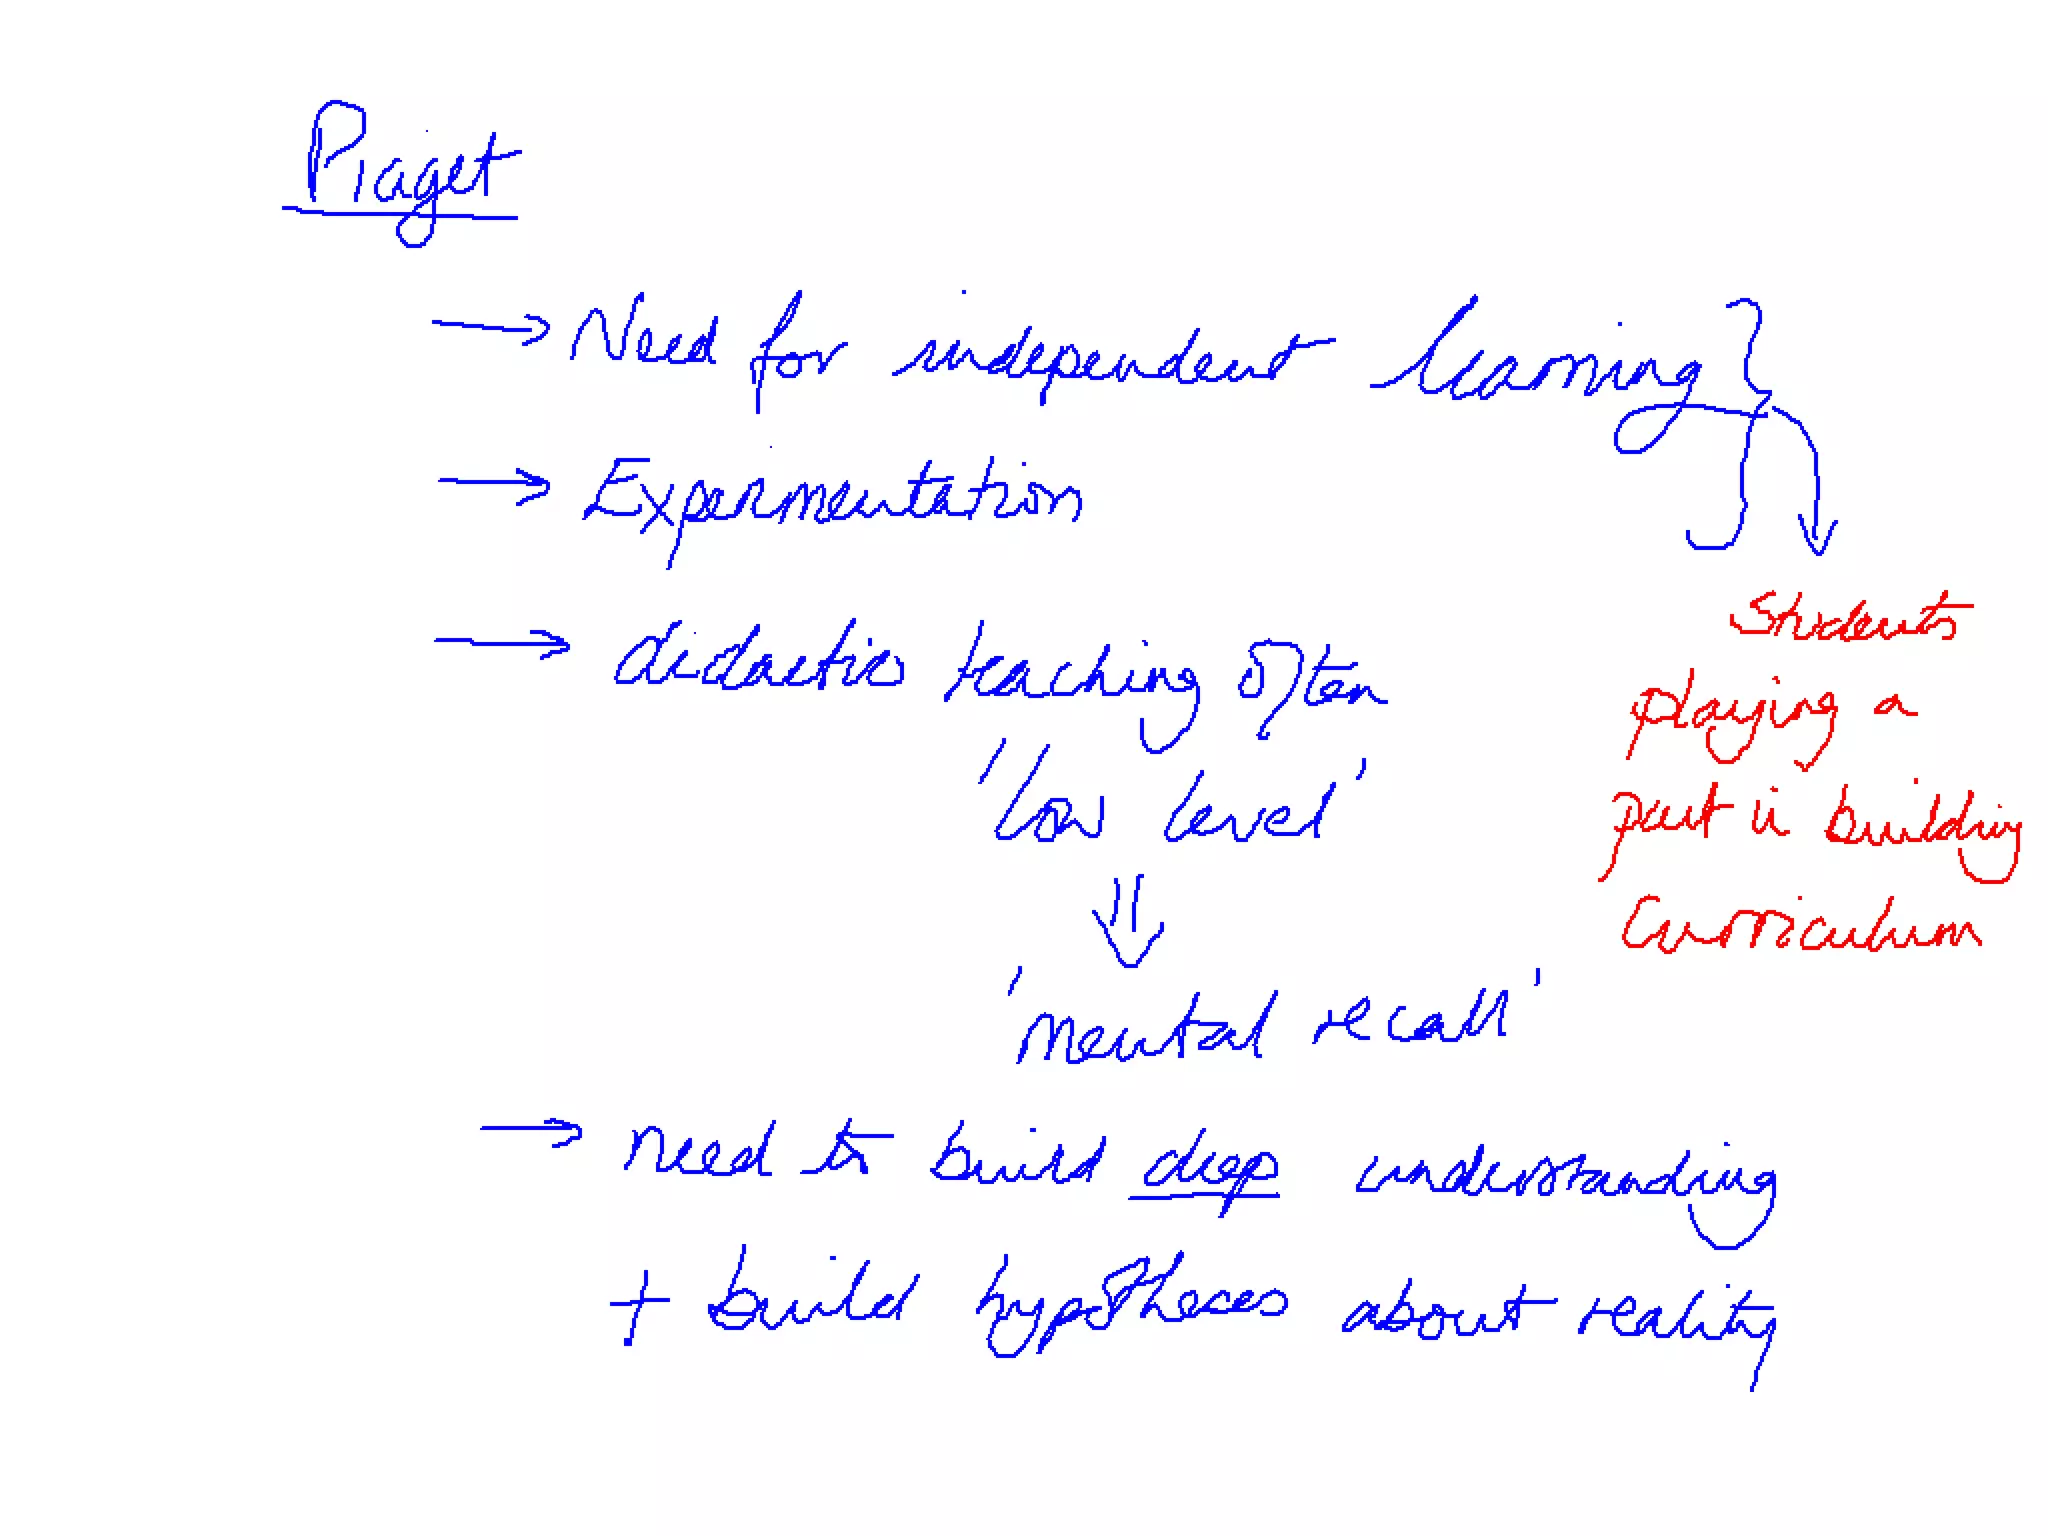 Piaget
→ Need for independent learning }
→ Experimentation
→ didactic teaching often
'low level'
⇓
'mental recall'
→ need to build deep understanding
+ build hypotheses about reality
Students
playing a
part in building
curriculum